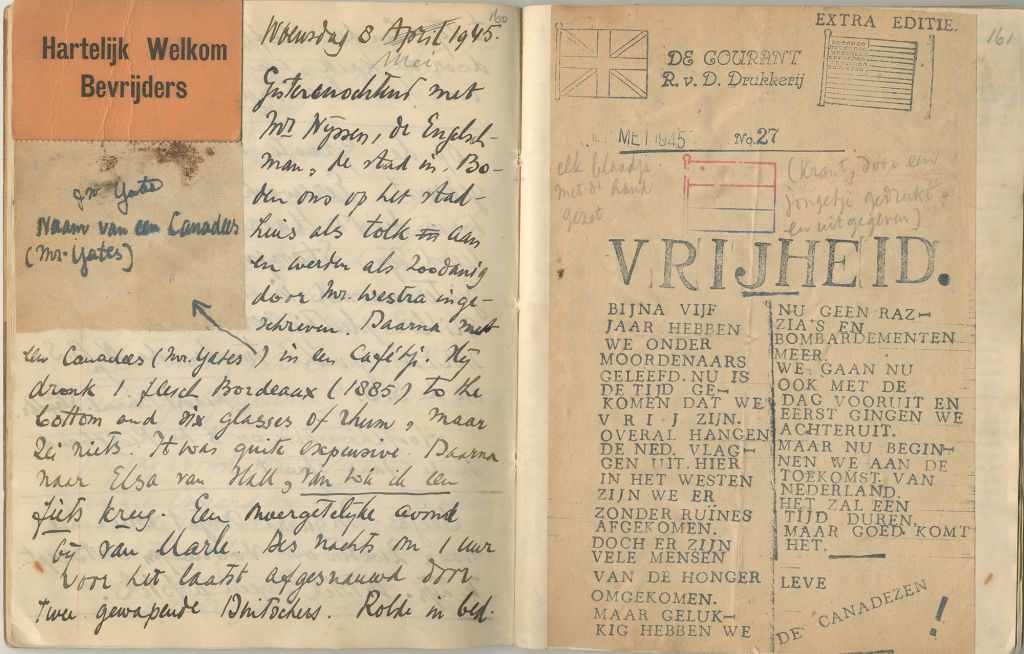 Hartelijk Welkom
Bevrijders
J.W. Yates
Naam van een Canadees
(Mr. Yates)
160
Woensdag 8 April 1945.
Mei
Gisterenochtend met
Mr Nyssen, de Engelsch-
man, de stad in. Bo-
den ons op het stad-
huis als tolk aan
en werden als zoodanig
door Mr. Westra inge-
schreven. Daarna met
een Canadees (Mr. Yates) in een cafétj. Hij
dronk 1 flesch Bordeaux (1885) to the
bottom and six glasses of rhum, maar
zei niets. It was quite expensive. Daarna
naar Elsa van Hall, van wie ik een
fiets kreeg. Een onvergetelijke avond
bij van Marle. Des nachts om 1 uur
voor het laatst afgesnauwd door
twee gewapende Duitschers. Rolde in bed.
EXTRA EDITIE.
161
DE COURANT
R.v.D. Drukkerij
MEI 1945 No. 27
elk blaadje
met de hand
gezet
(Krant, door een
jongetje gedrukt
en uitgegeven)
VRIJHEID.
BIJNA VIJF
JAAR HEBBEN
WE ONDER
MOORDENAARS
GELEEFD. NU IS
DE TIJD GE-
KOMEN DAT WE
V R I J ZIJN.
OVERAL HANGEN
DE NED. VLAG-
GEN UIT. HIER
IN HET WESTEN
ZIJN WE ER
ZONDER RUÏNES
AFGEKOMEN.
DOCH ER ZIJN
VELE MENSEN
VAN DE HONGER
OMGEKOMEN.
MAAR GELUK-
KIG HEBBEN WE
NU GEEN RAZ-
ZIA'S EN
BOMBARDEMENTEN
MEER.
WE GAAN NU
OOK MET DE
DAG VOORUIT EN
EERST GINGEN WE
ACHTERUIT.
MAAR NU BEGIN-
NEN WE AAN DE
TOEKOMST VAN
NEDERLAND.
HET ZAL EEN
TIJD DUREN,
MAAR GOED KOMT
HET.
LEVE
DE CANADEZEN!